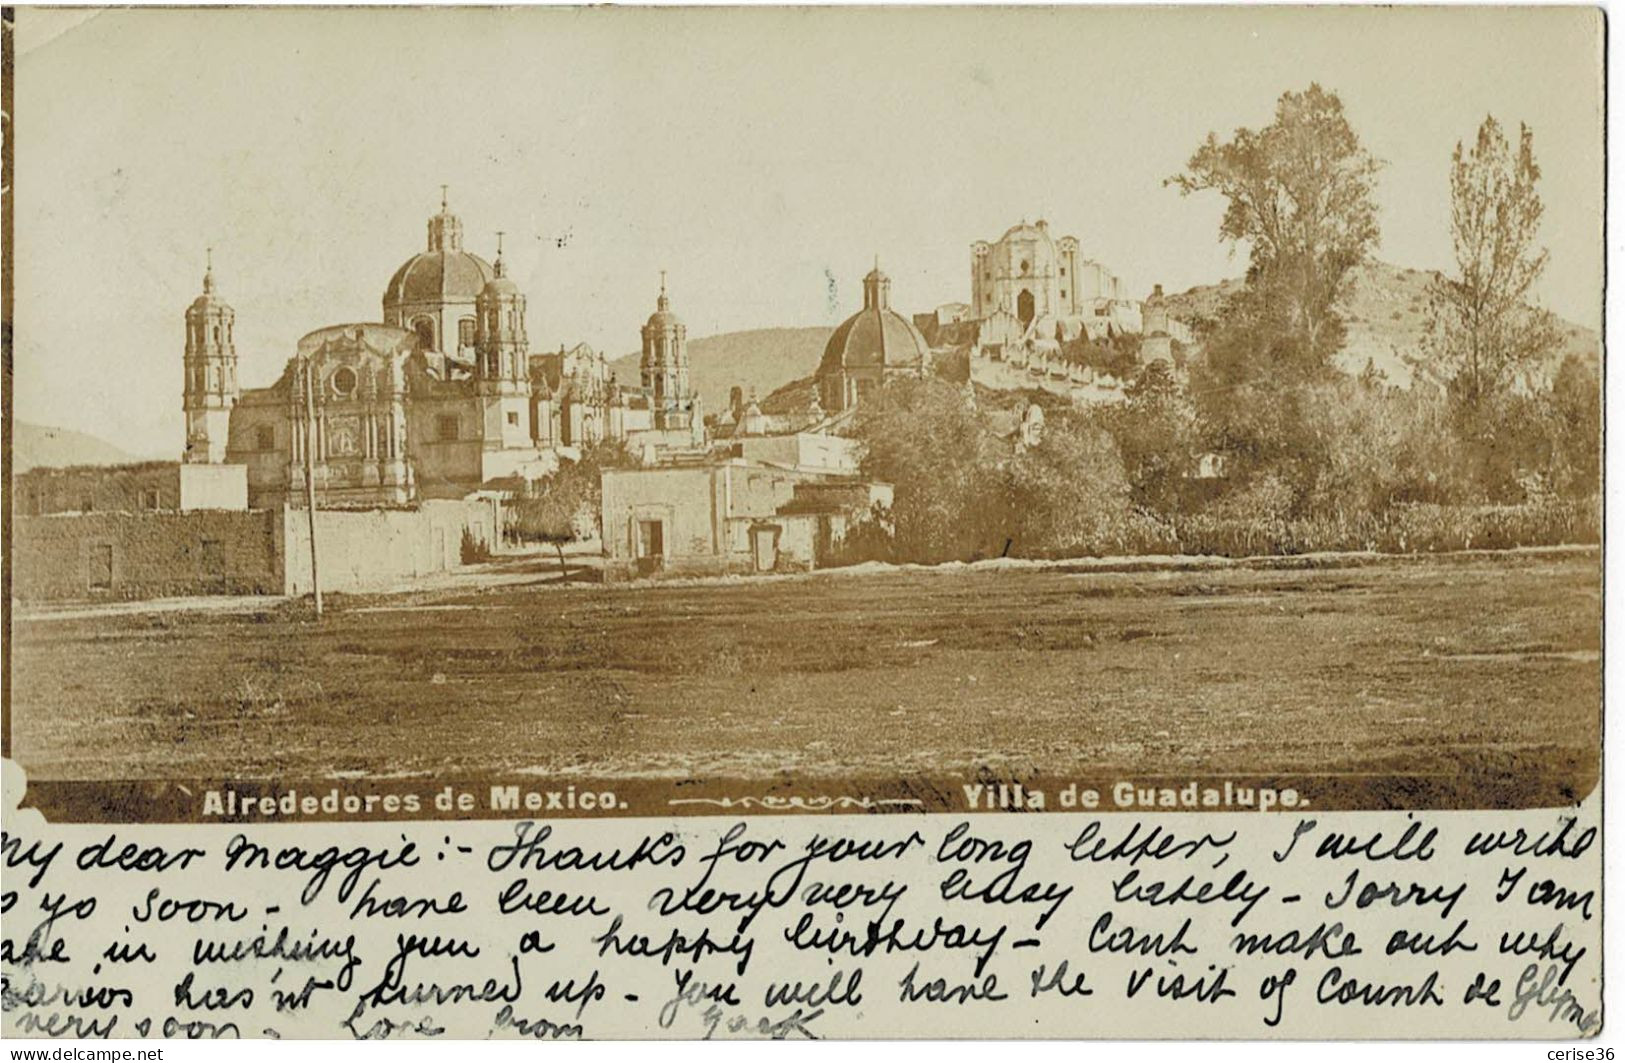 Alrededores de Mexico. Villa de Guadalupe.
My dear Maggie:- Thanks for your long letter, I will write
to yo soon - have been very very busy lately - Sorry I am
late in wishing you a happy birthday - Cant make out why
has'nt turned up - You will have the visit of Count de
very soon - Love from Jack
www.delcampe.net
cerise36